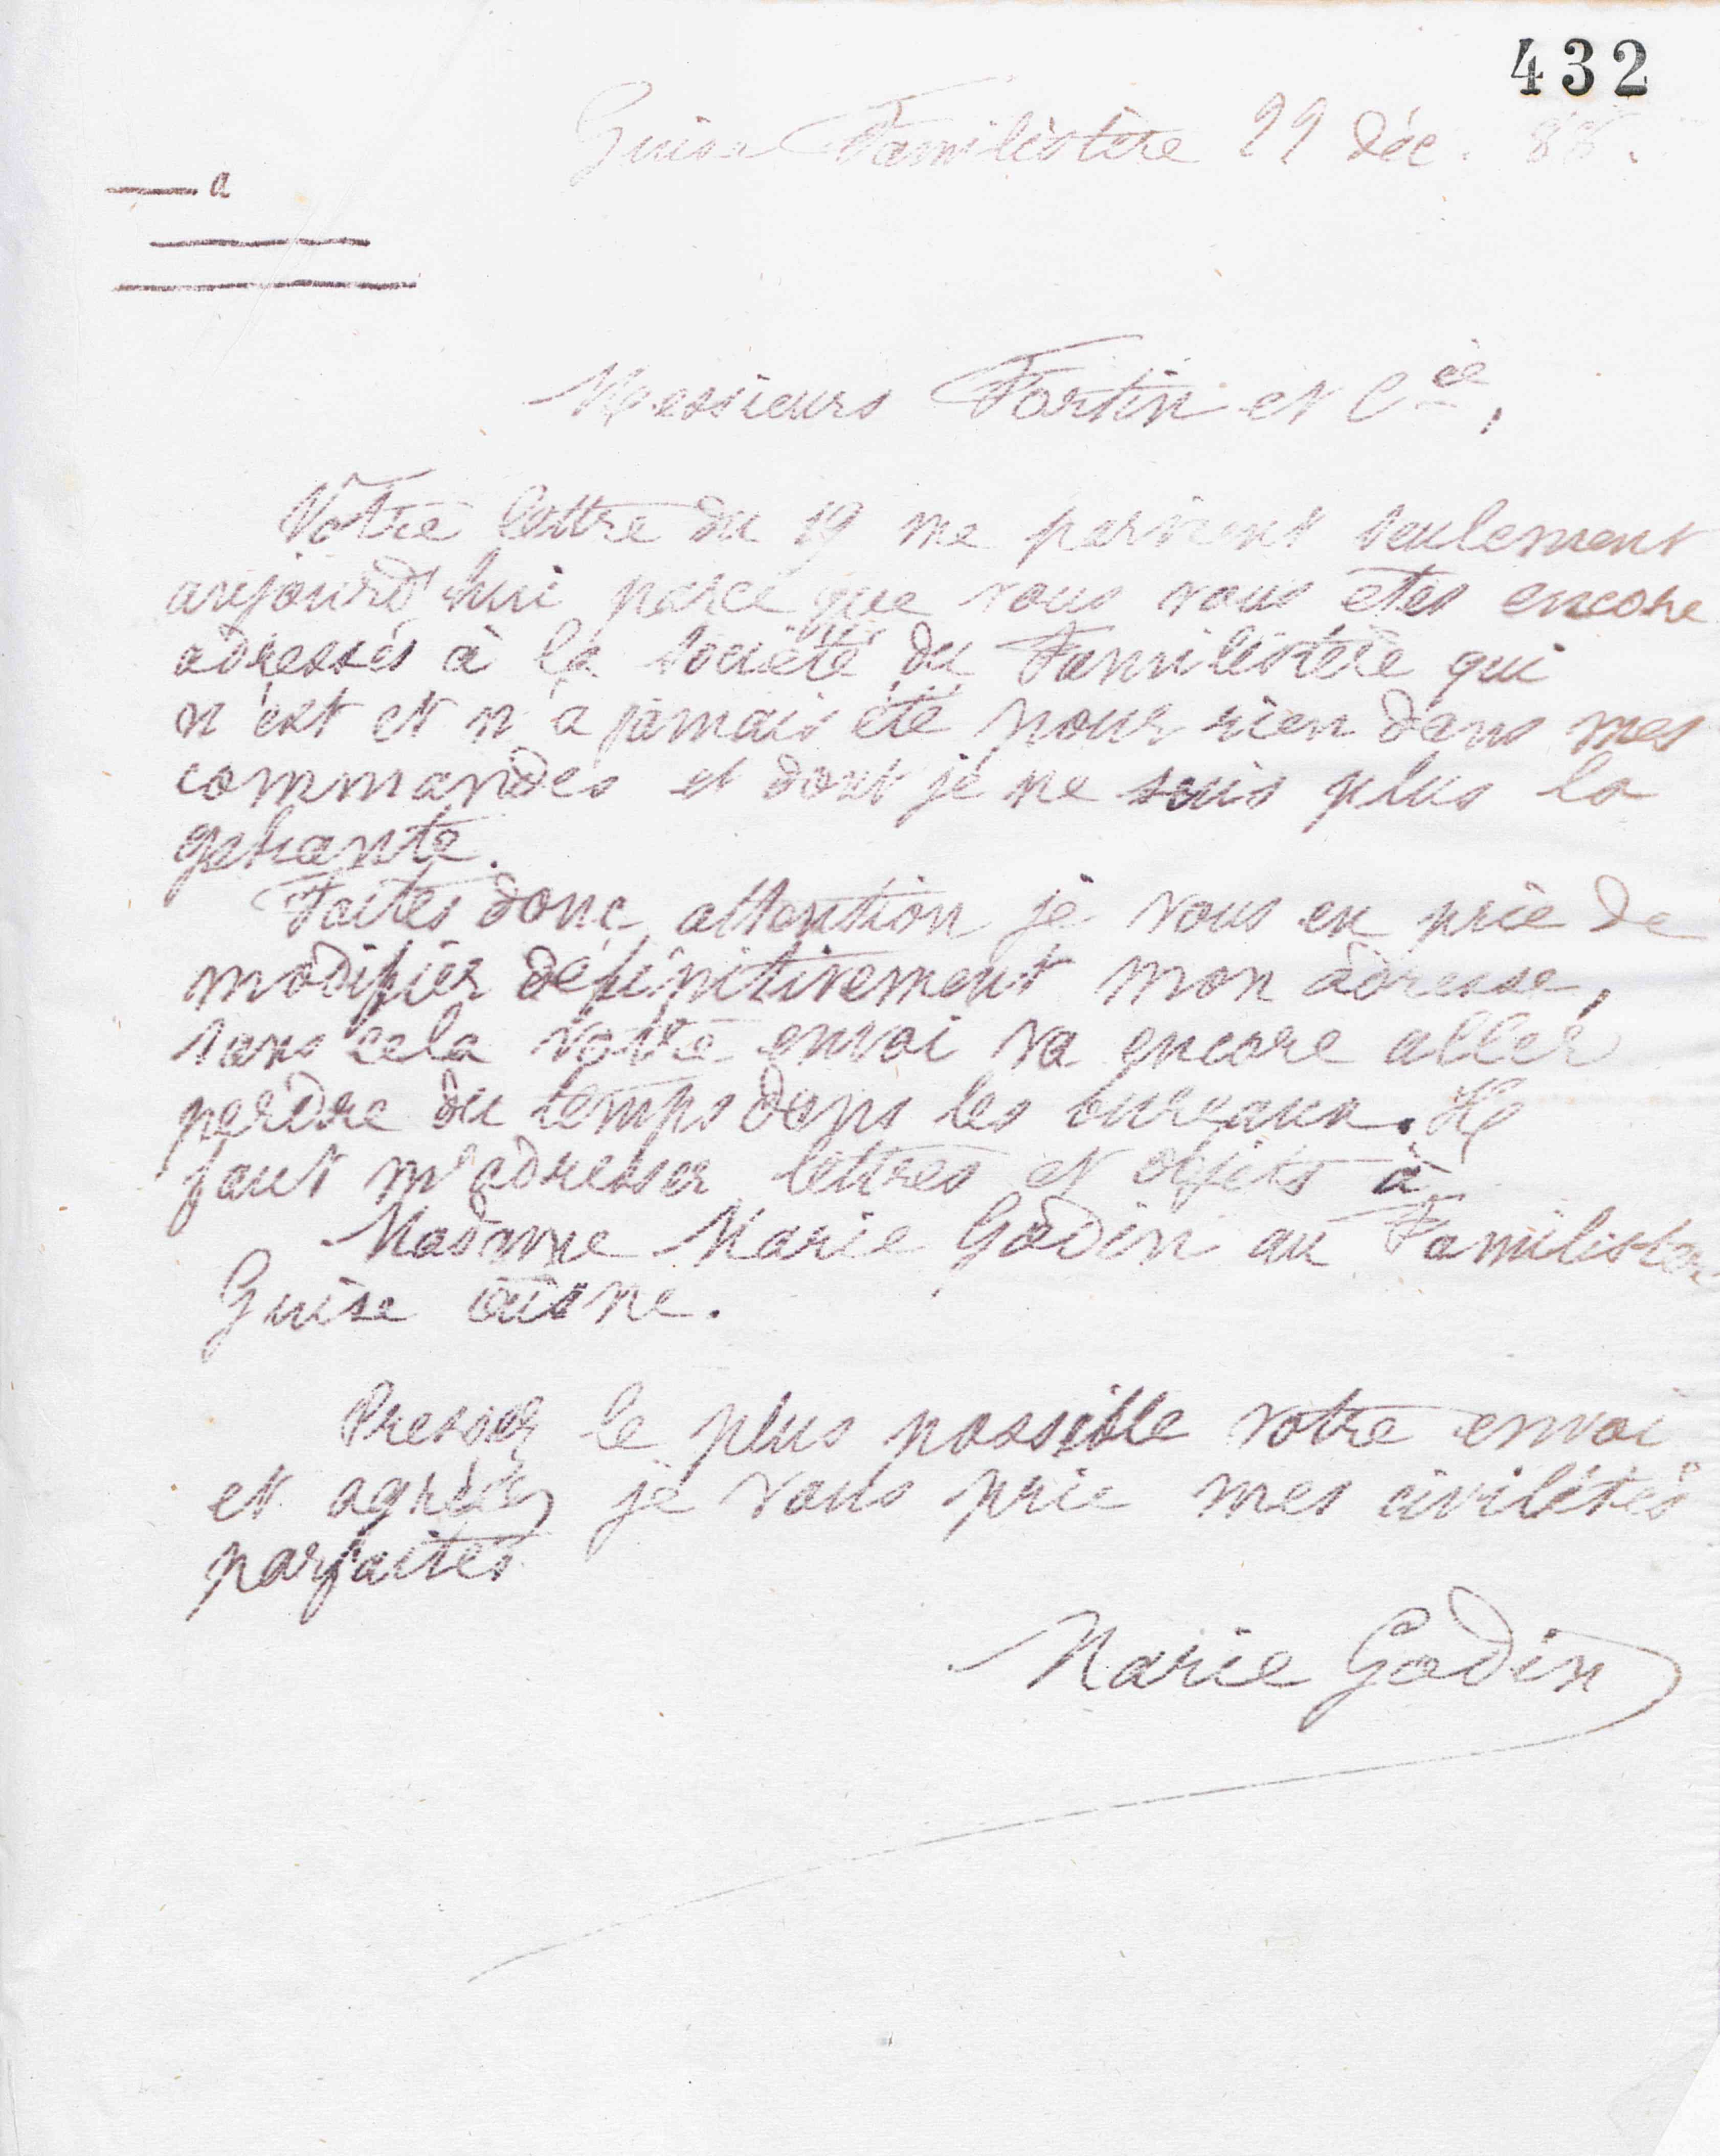 432
Guise Familistère 22 déc. 88.
a
Messieurs Fortin et Cie,
Votre lettre du 19 me parvient seulement
aujourd'hui parce que vous vous êtes encore
adressés à la Société du Familistère qui
n'est et n'a jamais été pour rien dans mes
commandes et dont je ne suis plus la
gérante.
Faites donc attention je vous en prie de
modifier définitivement mon adresse,
sans cela votre envoi va encore aller
perdre du temps dans les bureaux. Il
faut m'adresser lettres et objets à
Madame Marie Godin au Familistère
Guise Aisne.
Pressez le plus possible votre envoi
et agréez je vous prie mes civilités
parfaites
Marie Godin